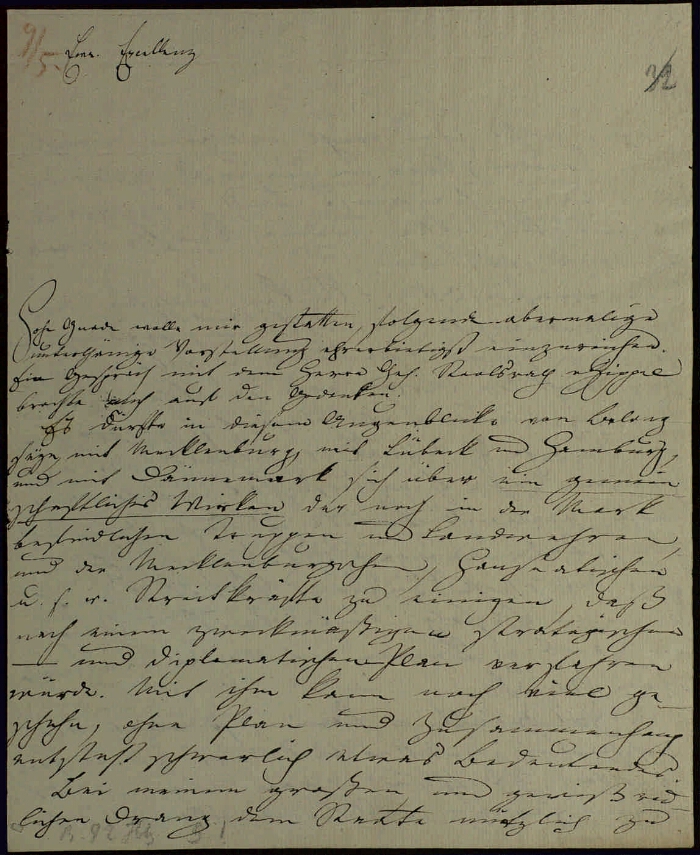 9/5.
Eure Excellenz
32
Hohe Gnade wolle mir gestatten, folgende abermalige
unterthänige Vorstellung ehrerbietigst einzureichen.
Ein Gespräch mit dem Herrn Geh. Staatsrath
brachte mich auf den Gedanken.
Es dürfte in diesem Augenblicke von Belang
seyn, mit Mecklenburg, mit Lübeck und Hamburg,
und mit Dännemark sich über ein gemein
schaftliches Wirken der noch in der Mark
befindlichen Truppen und Landwehren,
und der Mecklenburgschen, Hanseatischen
u. s. w. Streitkräfte zu einigen, daß
nach einem zweckmäßigen strategischen
— und diplomatischen Plan verfahren
würde. Mit ihm kann noch viel ge-
schehn, ohne Plan und Zusammenhang
entsteht schwerlich etwas Bedeutendes.
Bei meinem großen und gewiß red
lichen Drang dem Staate nützlich zu